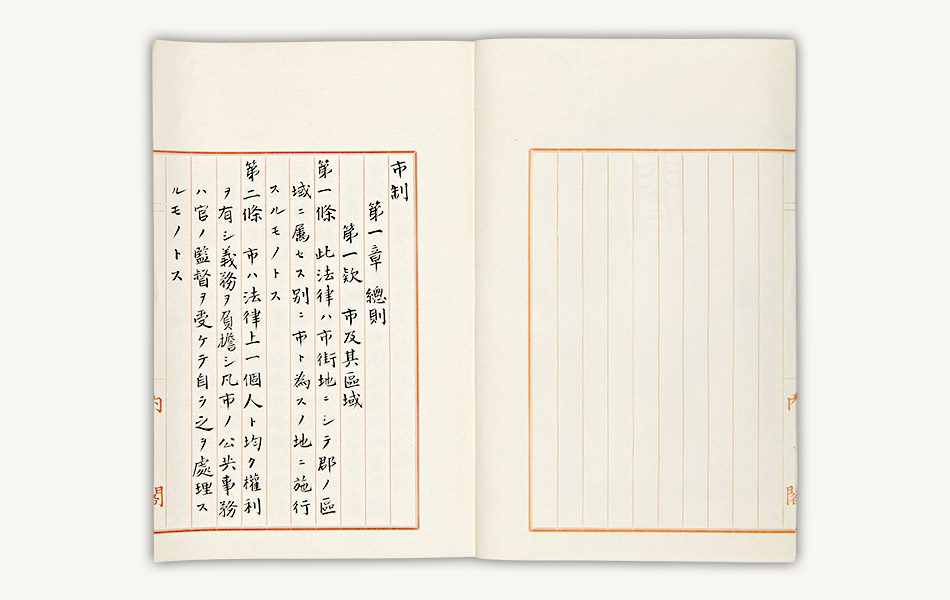 市制
第一章 總則
第一欵 市及其區域
第一條 此法律ハ市街地ニシテ郡ノ區
域ニ属セス別ニ市ト為スノ地ニ施行
スルモノトス
第二條 市ハ法律上一個人ト均ク權利
ヲ有シ義務ヲ負擔シ凡市ノ公共事務
ハ官ノ監督ヲ受ケテ自ラ之ヲ處理ス
ルモノトス
内閣
内閣